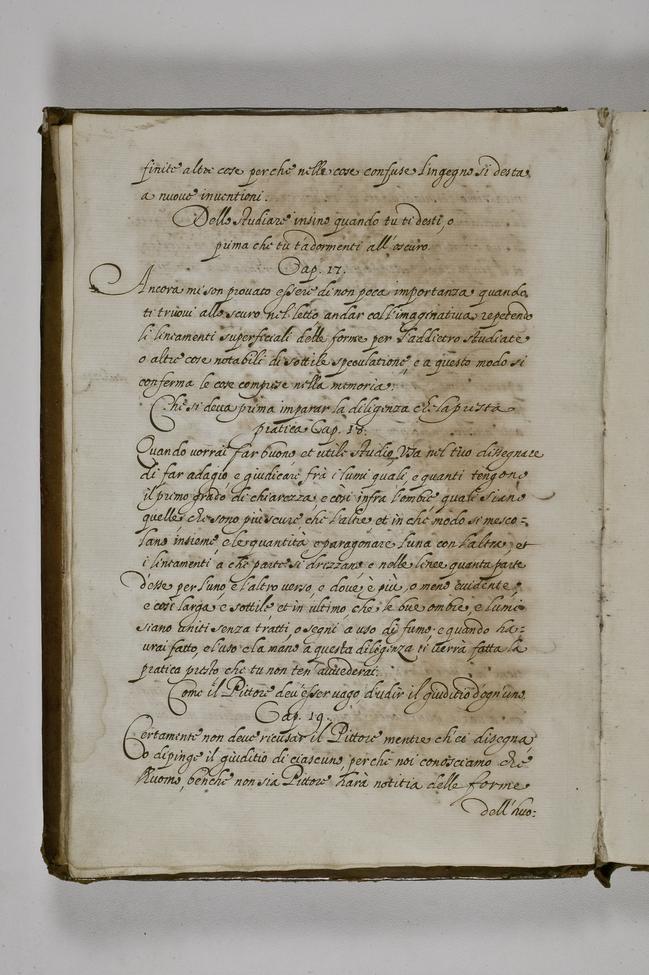 finite altre cose perche nelle cose confuse l'ingegno si desta
a nuove inventioni.
Dello studiare insino quando tu ti desti, o
prima che tu t'adormenti all'oscuro.
Cap. 17.
Ancora mi son provato essere di non poca importanza quando
ti truovi allo scuro nel letto andar coll'imaginativa repetendo
li lineamenti superficiali delle forme per l'addietro studiate
o altre cose notabili di sottile speculatione, e a questo modo si
conferma le cose comprese nella memoria.
Che si deva prima imparar la diligenza che la presta
pratica Cap. 18.
Quando vorrai far buono et utile studio, usa nel tuo dissegnare
di far adagio e giudicare frà i lumi quali, e quanti tengono
il primo grado di chiarezza, e così infra l'ombre quali siano
quelle che sono più scure che l'altre et in che modo si mesco=
lano insieme e le quantità e paragonare l'una con l'altra, et
i lineamenti à che parte si drizzano e nelle linee quanta parte
d'esse per l'uno e l'altro verso, e dove è più, o meno evidente,
e così larga, e sottile et in ultimo che le tue ombre, e lumi
siano uniti senza tratti, o segni a uso di fumo. e quando ha=
vrai fatto, e l'uso e la mano a questa diligenza ti verrà fatta la
pratica presto che tu non ten'avvederai.
Come il Pittore dev'esser vago d'udir il giuditio d'ogn'uno
Cap. 19.
Certamente non deve ricusar il Pittore mentre ch'ei disegna,
o dipinge il giuditio di ciascuno perche noi conosciamo che
l'huomo, benche non sia Pittore harà notitia delle forme
dell'huo: